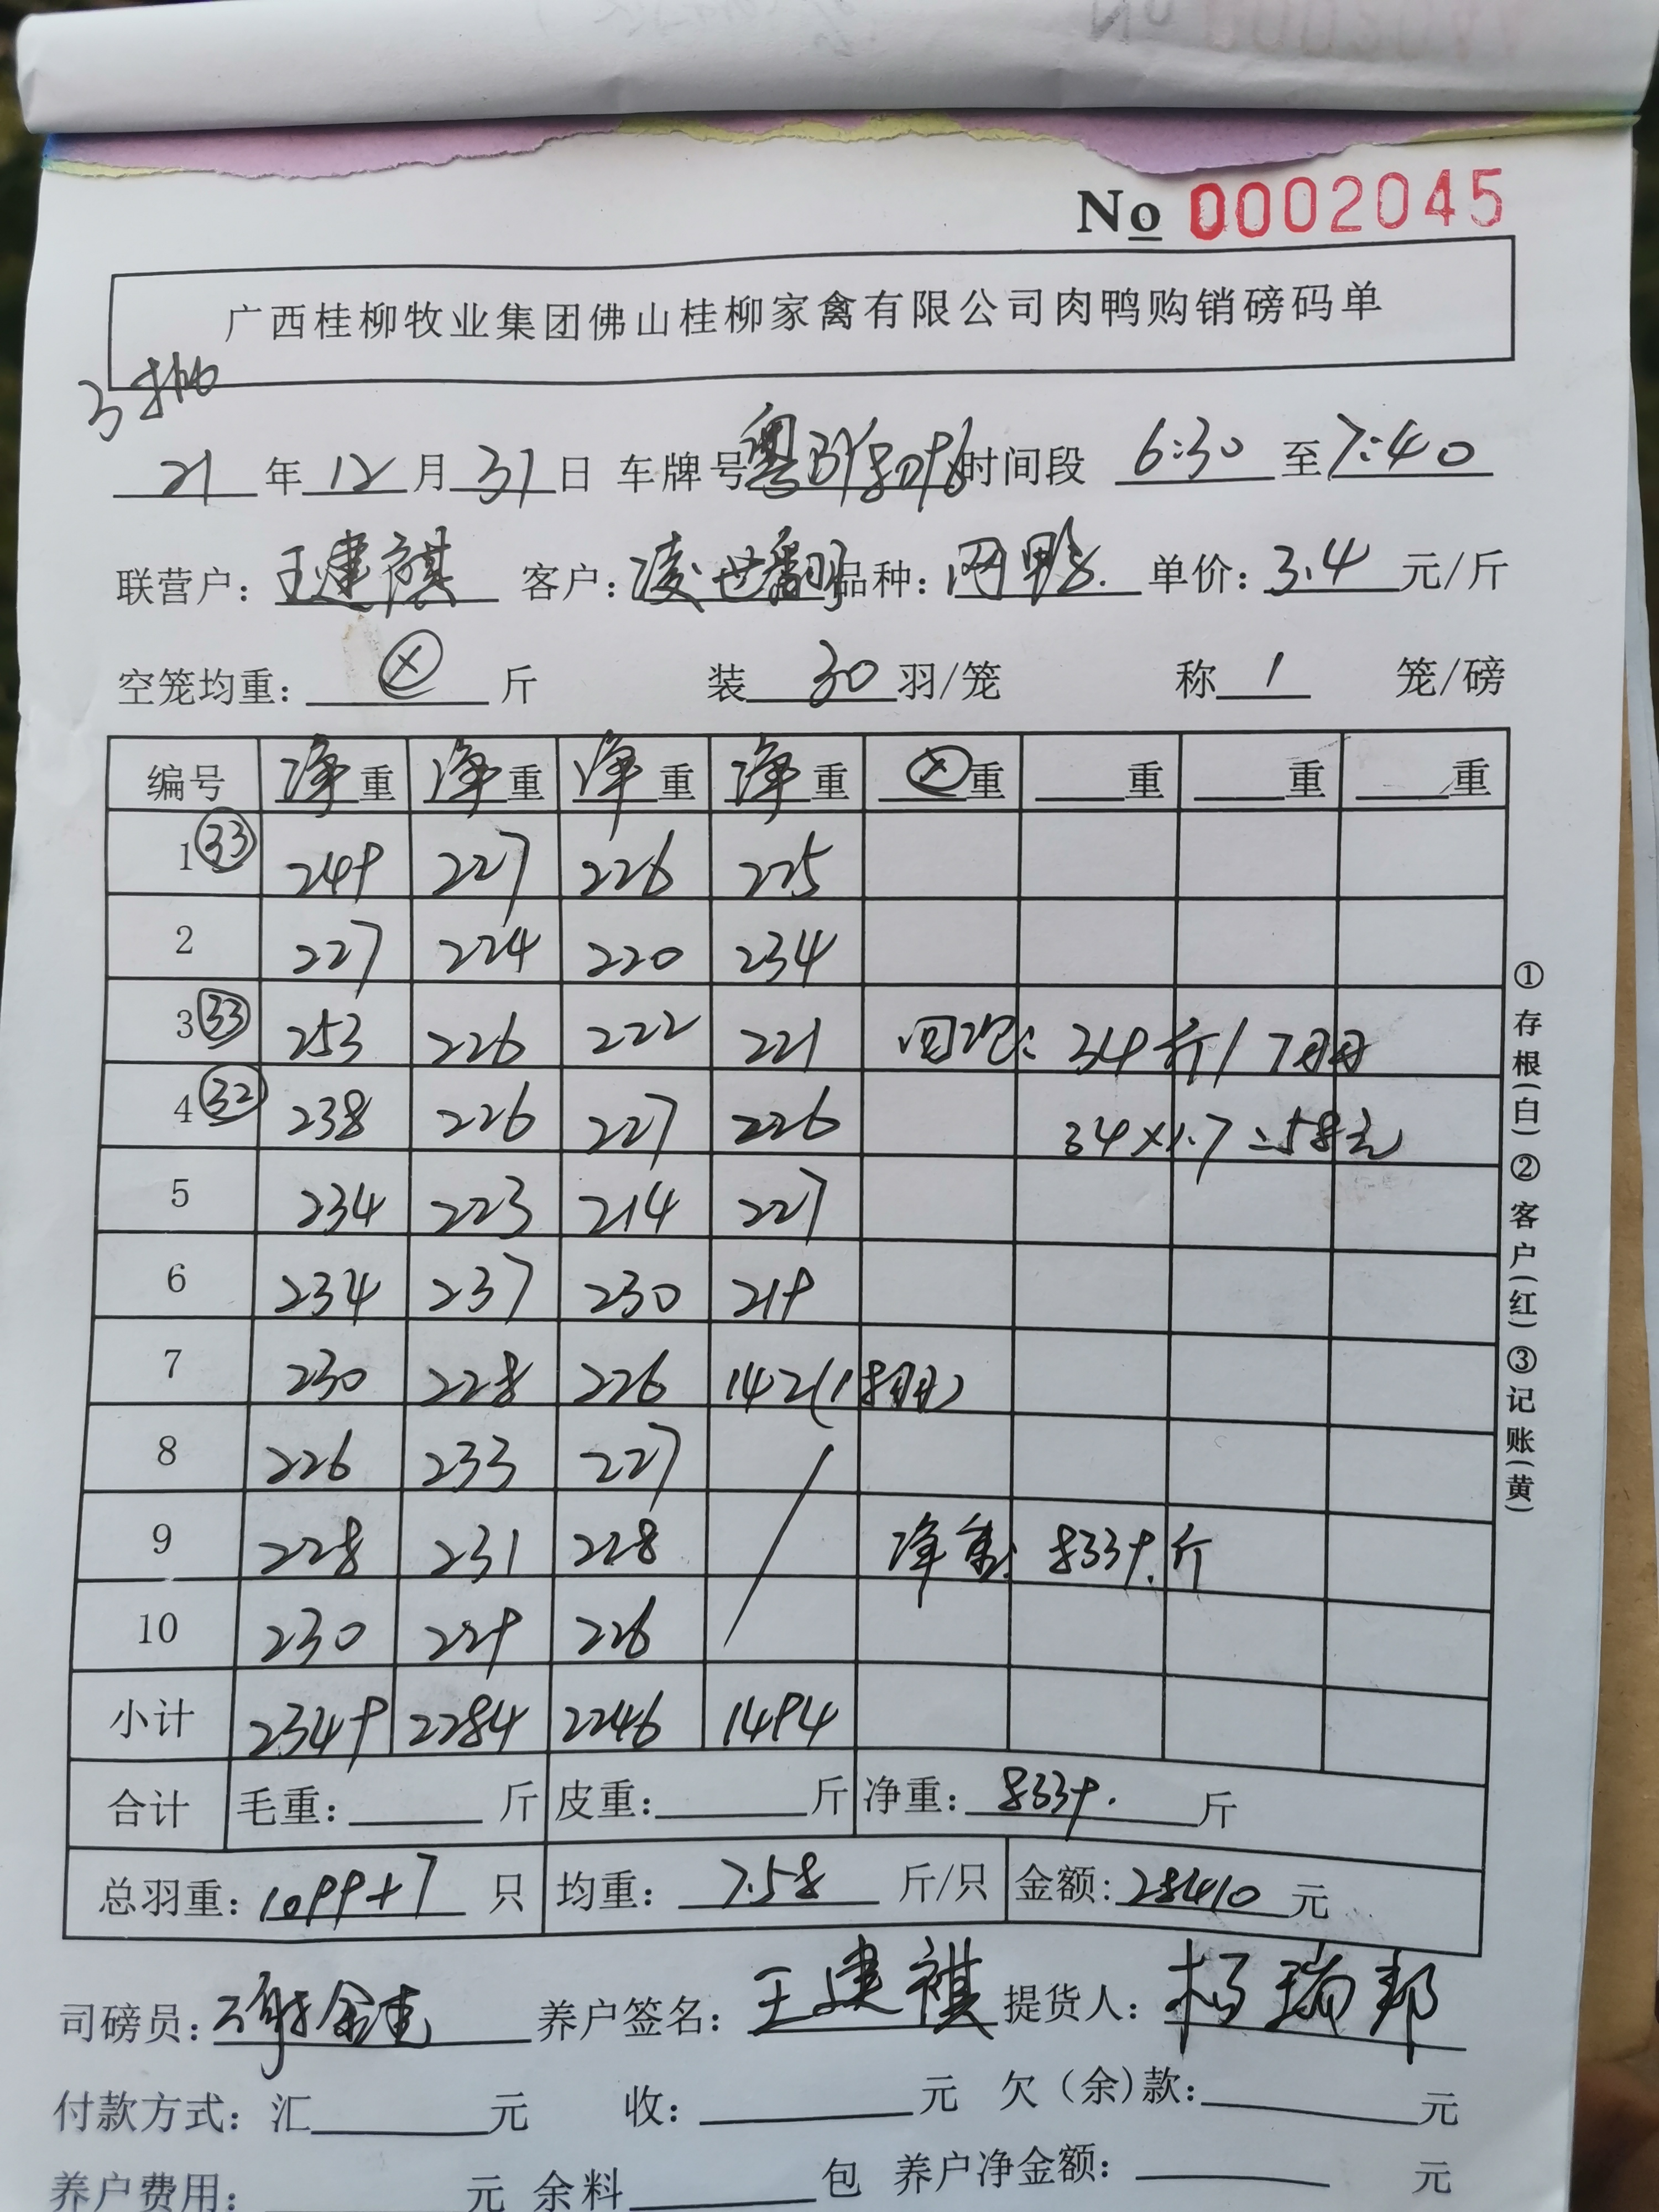 No 0002045
广西桂柳牧业集团佛山桂柳家禽有限公司肉鸭购销磅码单
3批
21年12月31日 车牌号粤 时间段 6:30至7:40
联营户：王建祺 客户：凌世翻 品种： 鸭 单价：3.4元/斤
空笼均重：ⓧ斤 装30羽/笼 称1笼/磅
编号 净重 净重 净重 净重 ⓧ重 重 重 重
1 ㉝ 249 227 226 225
2 227 224 220 234
3 ㉝ 253 226 222 221 34斤/7羽
4 ㉜ 238 226 227 226 34×1.7=58元
5 234 223 214 227
6 234 237 230 219
7 230 228 226 142(18羽)
8 226 233 227
9 228 231 228 净重: 8339.斤
10 230 229 226
小计 2349 2284 2246 1494
合计 毛重： 斤 皮重： 斤 净重：8339.斤
总羽重：1099+7只 均重：7.58斤/只 金额：28410元
司磅员：谢 养户签名：王建祺 提货人：杨瑞邦
付款方式：汇 元 收： 元 欠（余)款： 元
养户费用： 元 余料 包 养户净金额： 元
①存根(白)②客户(红)③记账(黄)